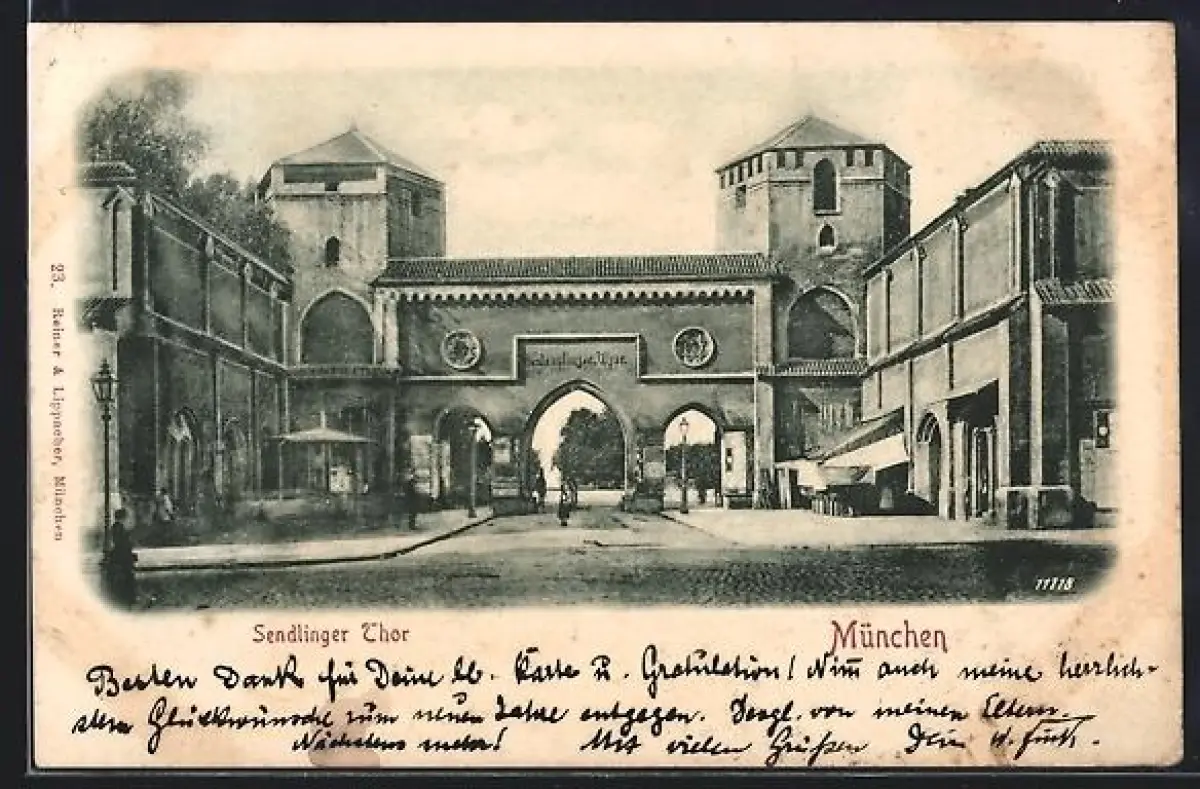 23. Reiner & Lippacher, München
Sendlinger Thor.
11118
Sendlinger Thor
München
Besten Dank für Deine lb. Karte u. Gratulation! Nim auch meine herzlich-
sten Glückwünsche zum neuen Jahre entgegen. Desgl. von meinen Eltern.
Nächstens mehr! Mit vielen Grüßen Dein